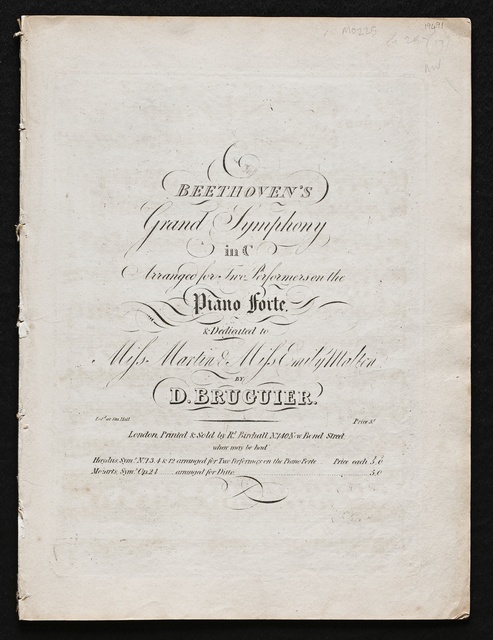 M0235
BEETHOVEN'S
Grand Symphony
in C
Arranged for Two Performers on the
Piano Forte.
& Dedicated to
Miss Martin & Miss Emily
BY
D. BRUGUIER.
Ent.d at Sta. Hall
Price 8s
London, Printed & Sold by R.t Birchall, No. 140 New Bond Street
where may be had
Haydn's Sym.s No. 1 3. 4 & 12 arranged for Two Performers on the Piano Forte Price each
Mozarts Sym. Op. 24 arranged for Ditto 5.0